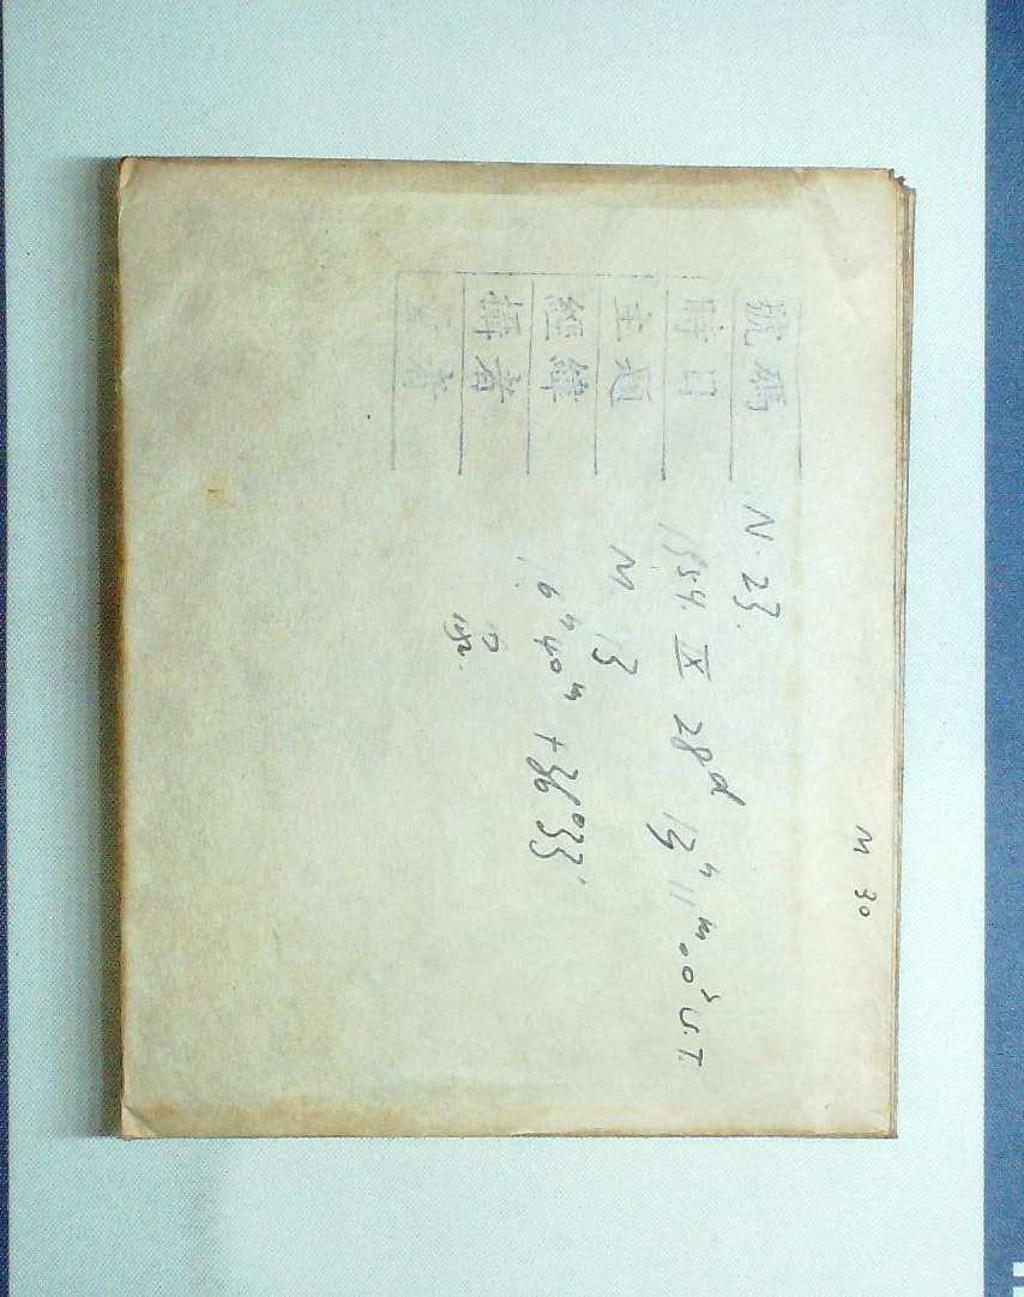 M 30
號碼 N. 23.
時日 1954. IX 28ᵈ 13ʰ 11ᵐ.0ˢ U.T.
主題 M 13
經緯 16ʰ40ᵐ +36°33′
攝者
著者